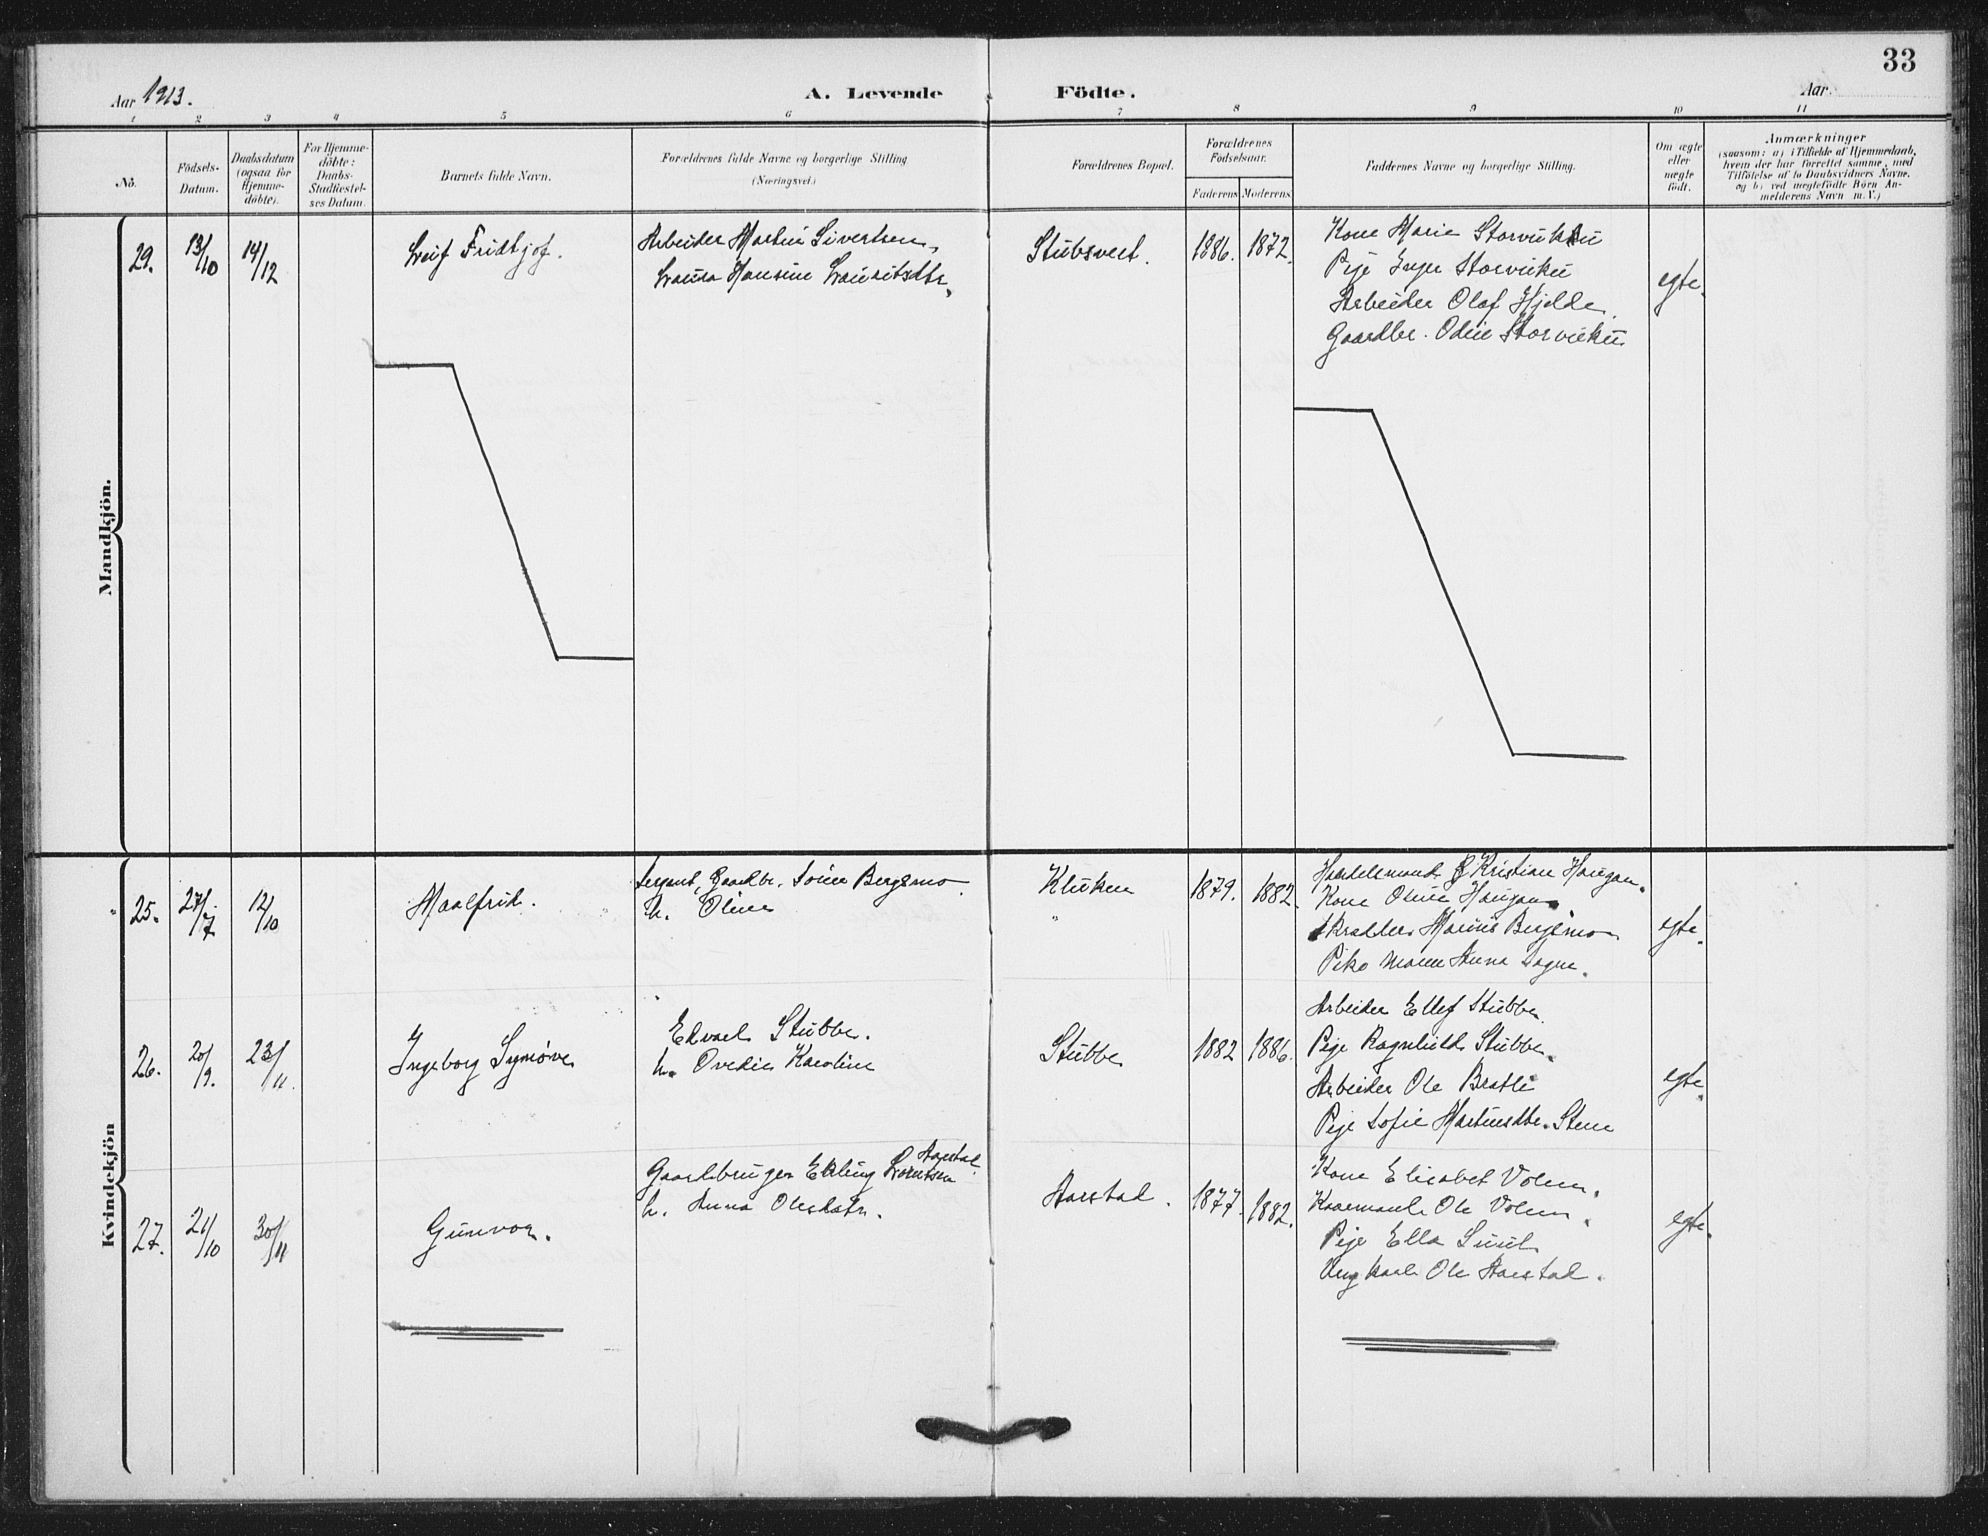 33
Aar 1913.
A. Levende Födte.
Aar
1 2 3 4 5 6 7 8 9 10 11
Nö.
Födsels-
Datum.
Daabsdatum
(ogsaa for
Hjemme-
döbte).
For Hjemme-
döbte:
Daabs-
Stadfæstel-
ses Datum.
Barnets fulde Navn.
Forældrenes fulde Navne og borgerlige Stilling
(Næringsvei.)
Forældrenes Bopæl.
Forældrenes
Födselsaar.
Faderens Moderens
Faddernes Navne og borgerlige Stilling.
Om ægte
eller
uægte
födt.
Anmærkninger
(saasom: a) i Tilfælde af Hjemmedaab,
hvem der har forrettet samme, med
Tilföielse af to Daabsvidners Navne.
og b) ved uægtefödte Börn An-
melderens Navn m. V.)
Mandkjön.
29. 13/10 14/12 Leif Fridtjof.
Arbeider Martin Sivertsen,
Laura Hansine Lauritsdtr.
Stubsveet. 1886. 1872.
Kone Marie Storvukku
Pige Inger Storvuku
Arbeider Olaf Hjelde.
Gaardbr. Odin Storvuku
egte.
Kvindekjön
25. 27/7 12/10 Maalfrid.
Sergant, Gaardbr. Sörin Bergsmo.
h. Oline
Kluken 1879. 1882.
Handelsmand Kristian Haugan.
Kone Oline Haugan.
Skrædder Marius Bergsmo
Pike Anna Sagen.
egte.
26. 20/9. 23/11. Ingeborg Synöve
Edvard Stubbe.
h. Ovedie Karoline
Stubbe 1882 1886.
Arbeider Ellef Stubbe.
Pige Ragnhild Stubbe.
Arbeider Ole Bratli
Pige Sofie Martinsdtr. Stene
egte.
27. 21/10 30/11 Gunvor.
Aarstad.
Gaardbruger Erling Lorntsen
h. Anna Olesdatr.
Aarstad. 1877. 1882.
Kone Elisabet Volen.
Kaarmand Ole Volen.
Pige Ella Suul.
Ungkarl Ole Aarstad.
egte.